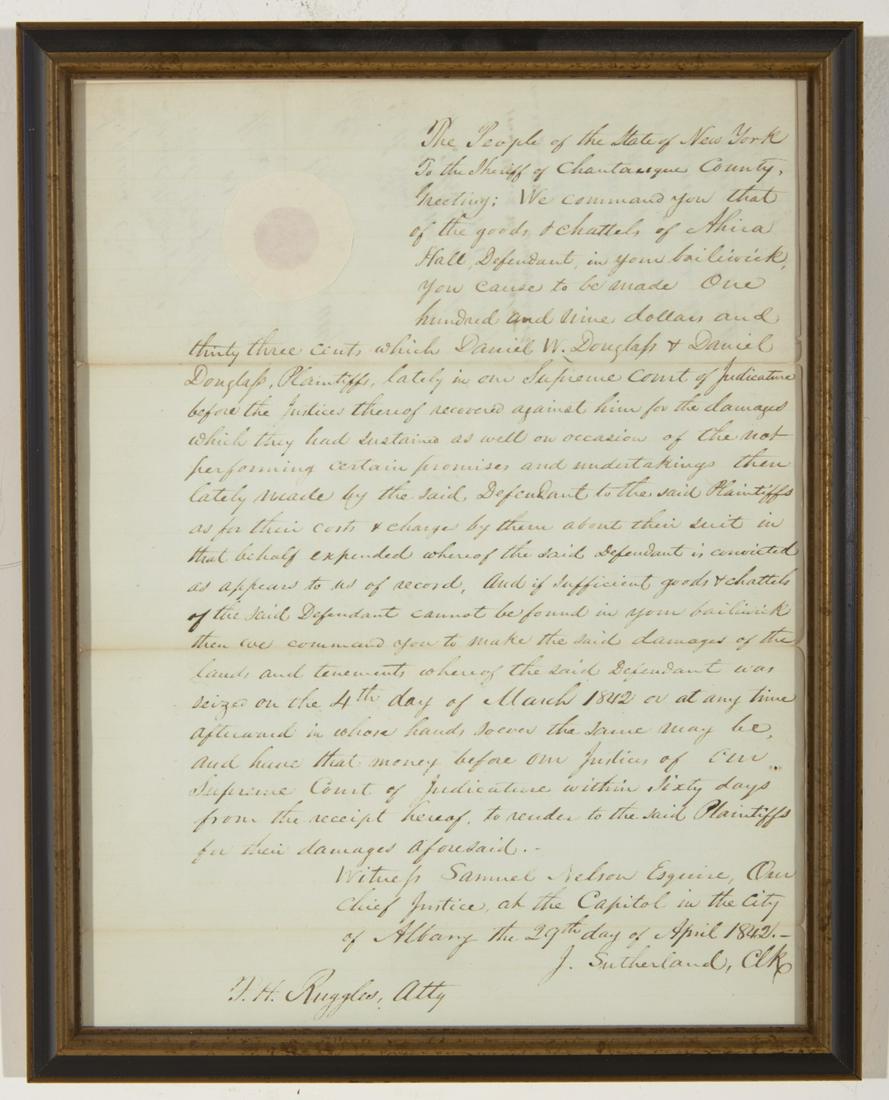 The People of the State of New York
To the Sheriff of Chautauque County,
Greeting: We command you that
of the goods & chattels of Ahira
Hall, Defendant, in your bailiwick,
you cause to be made One
hundred and nine dollars and
thirty three cents which Daniel W. Douglass & Daniel
Douglass, Plaintiffs, lately in our Supreme Court of Judicature
before the Justices thereof recovered against him for the damages
which they had sustained as well on occasion of the not
performing certain promises and undertakings then
lately made by the said, Defendant to the said Plaintiffs
as for their costs & charge by them about their suit in
that behalf expended whereof the said Defendant is convicted
as appears to us of record. And if sufficient goods & chattels
of the said Defendant cannot be found in your bailiwick
then we command you to make the said damages of the
lands and tenements whereof the said Defendant was
seized on the 4th day of March 1842 or at any time
afterward in whose hands soever the same may be,
and have that money before our Justices of our
Supreme Court of Judicature within sixty days
from the receipt hereof, to render to the said Plaintiffs
for their damages aforesaid.-
Witness Samuel Nelson Esquire, Our
Chief Justice, at the Capitol in the City
of Albany the 29th day of April 1842.-
J. Sutherland, Clk
T. H. Ruggles, Atty